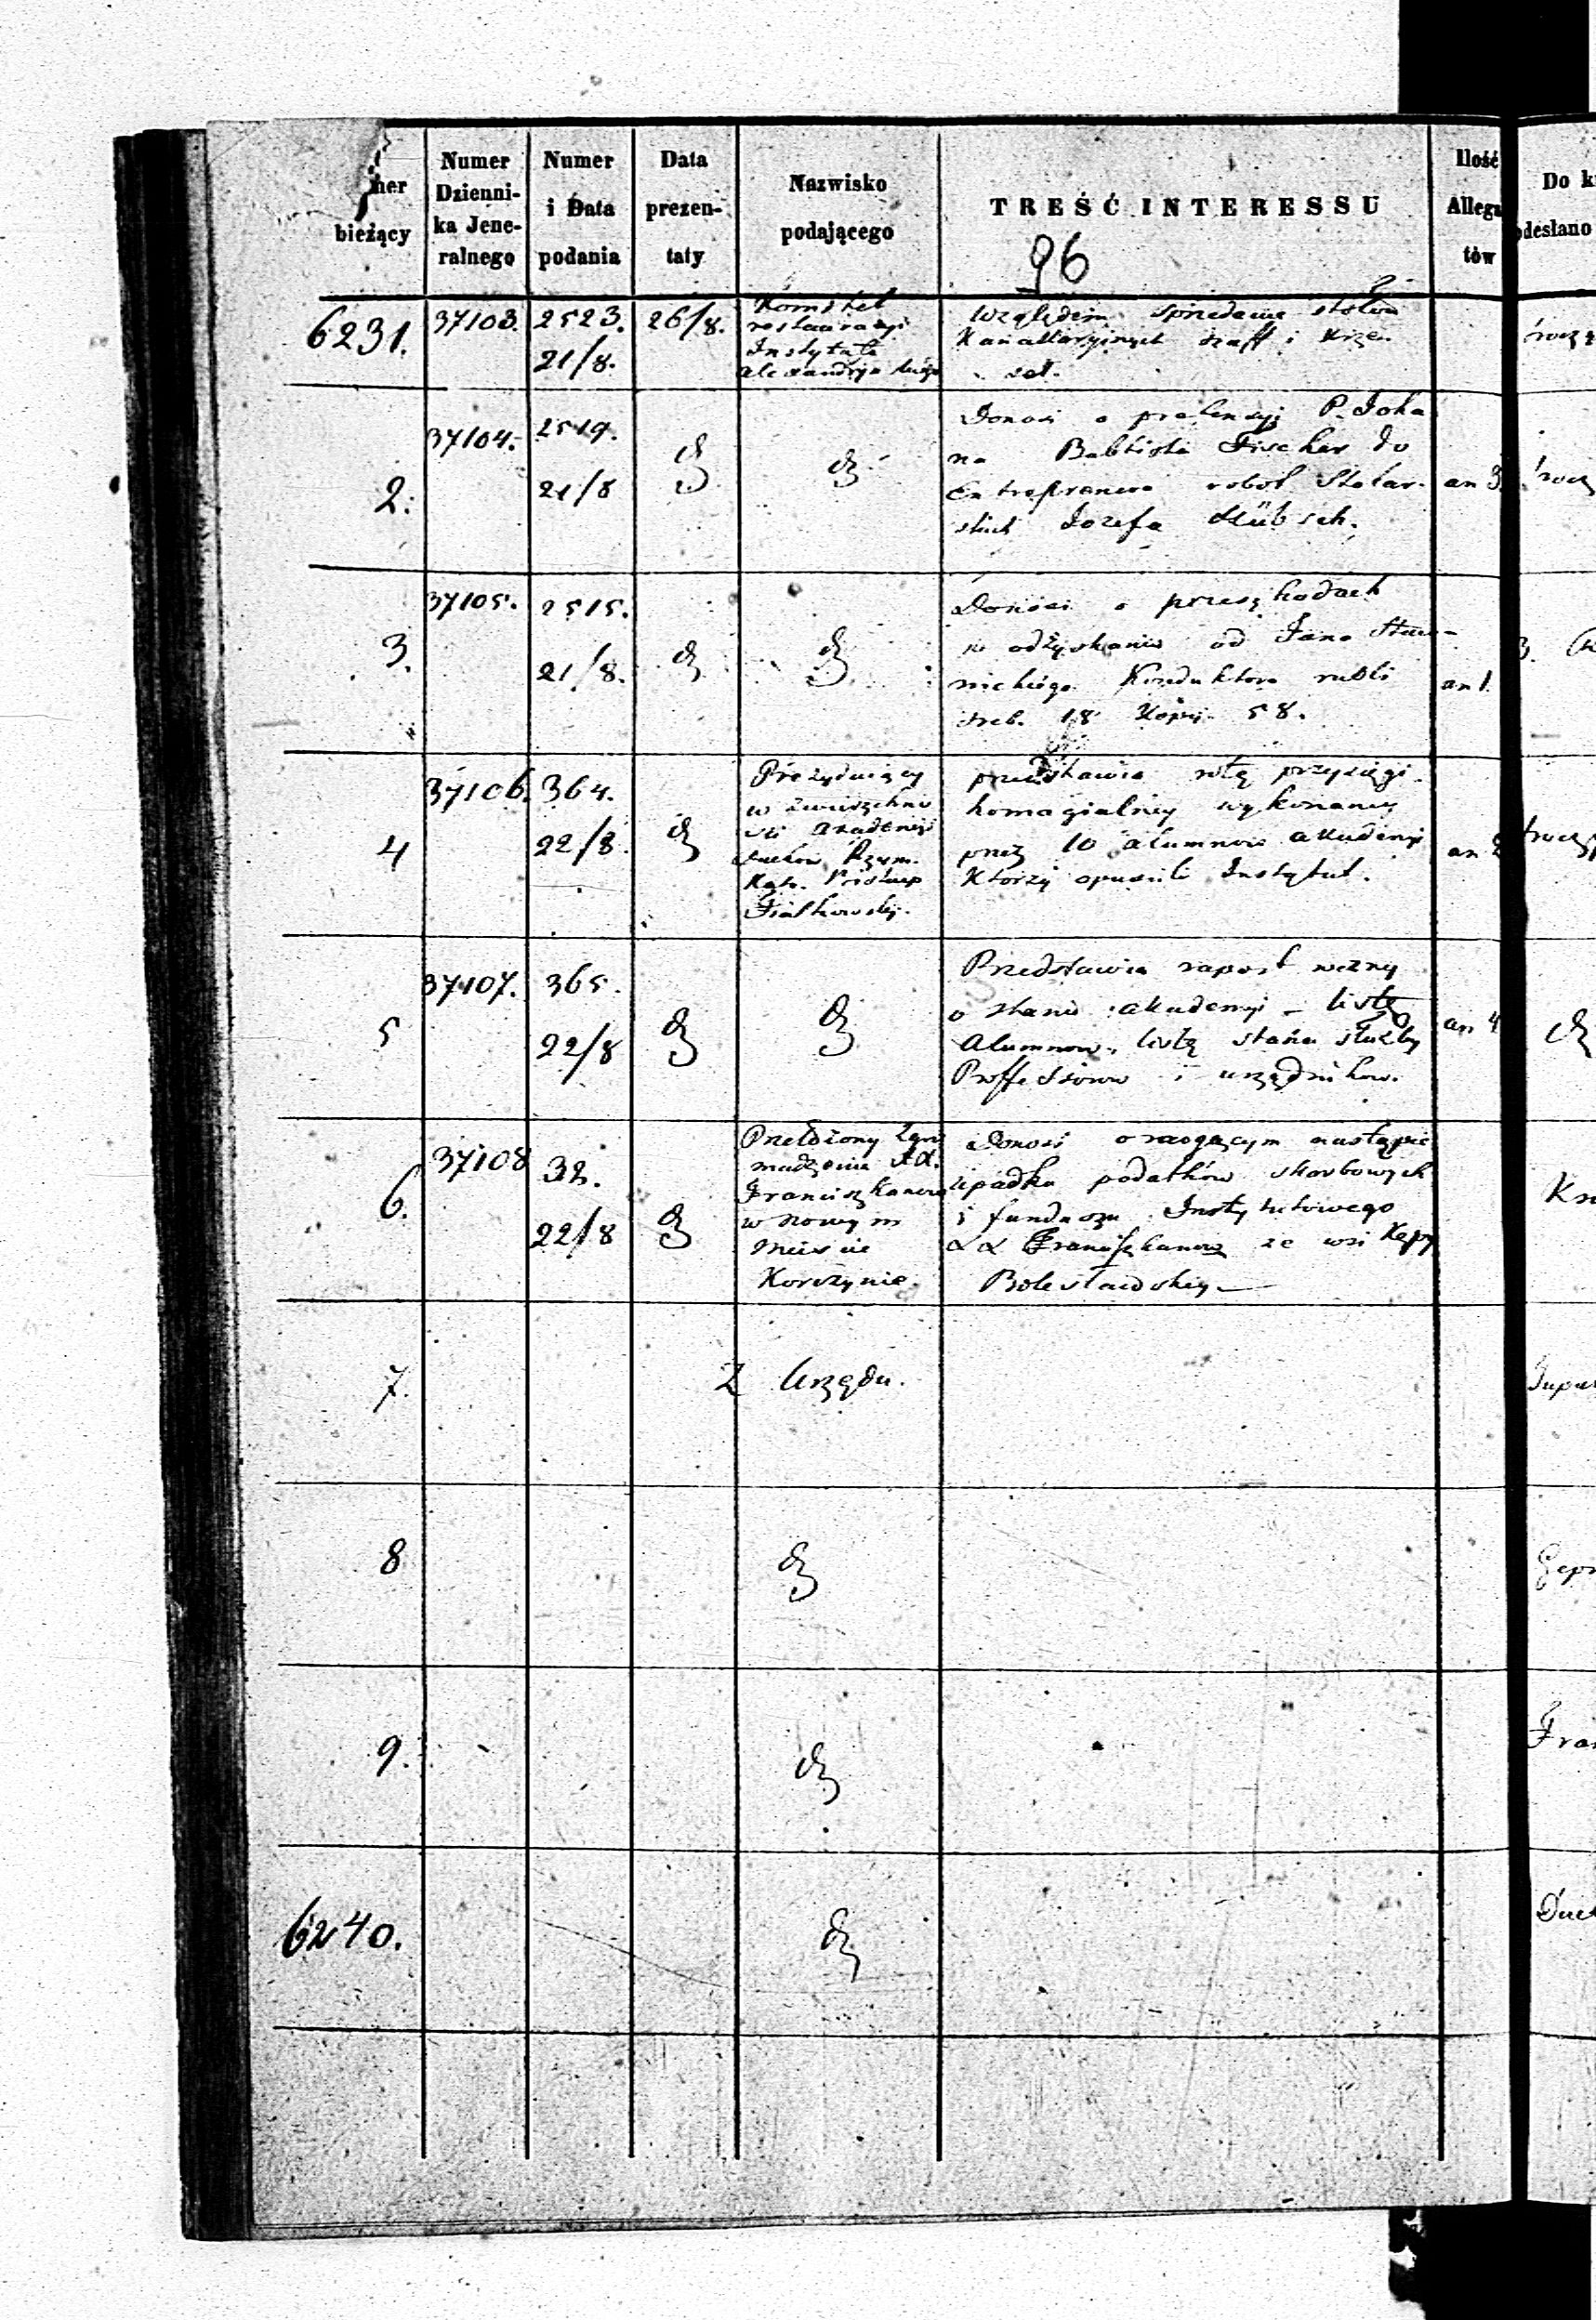 ner
bieżący
Numer
Dzienni-
ka Jene-
ralnego
Numer
i Data
podania
Data
prezen-
taty
Nazwisko
podającego
TREŚĆ INTERESSU
96
Ilość
Allega
tów
Do k
odesłano
6231.
37103.
2523.
21/8.
26/8.
Komitet
restauracyi
Instytutu
Względem sprzedaży stołów
szaff i krze
seł.
2.
37104.
2519.
21/8
Donosi o pretensyi P. Joha
na Babtista Fischer do
Entreprenera robot Stolar-
skich Jozefa Hübsch.
an 3.
3.
37105.
2515.
21/8.
Donosi o przeszkodach
w odzyskaniu od Jana
nickiego Konduktora rubli
sreb. 18 Kopij. 58.
an 1.
4
37106.
364.
22/8.
Prezydujący
w zwierzchno
ści Akademii
Duchow. Rzym.
Kato. Biskup
Fialkowski.
przedstawia rotę przysięgi
homagialney wykonaney
przez 10 alumnow akademyi
Ktorzy opuscili Instytut.
an 2
5
37107.
365.
22/8
Przedstawia raport
o stanie akademyi – listę
Alumnow, listę stanu służby
Proffessorow i urzędnikow.
an 4
6.
37108
32.
22/8
Przełożony Zgro
madzenia XX.
Franciszkanow
w Nowym
Mieście
Korczynie.
Donosi o mogącym nastąpić
upadku podatków skarbowych
i funduszu Instytutowego
XX Franciszkanow ze wsi Kępy
Bolesławskiey –
Kn
7.
Z Urzędu.
8
9.
Fran
6240.
Duch